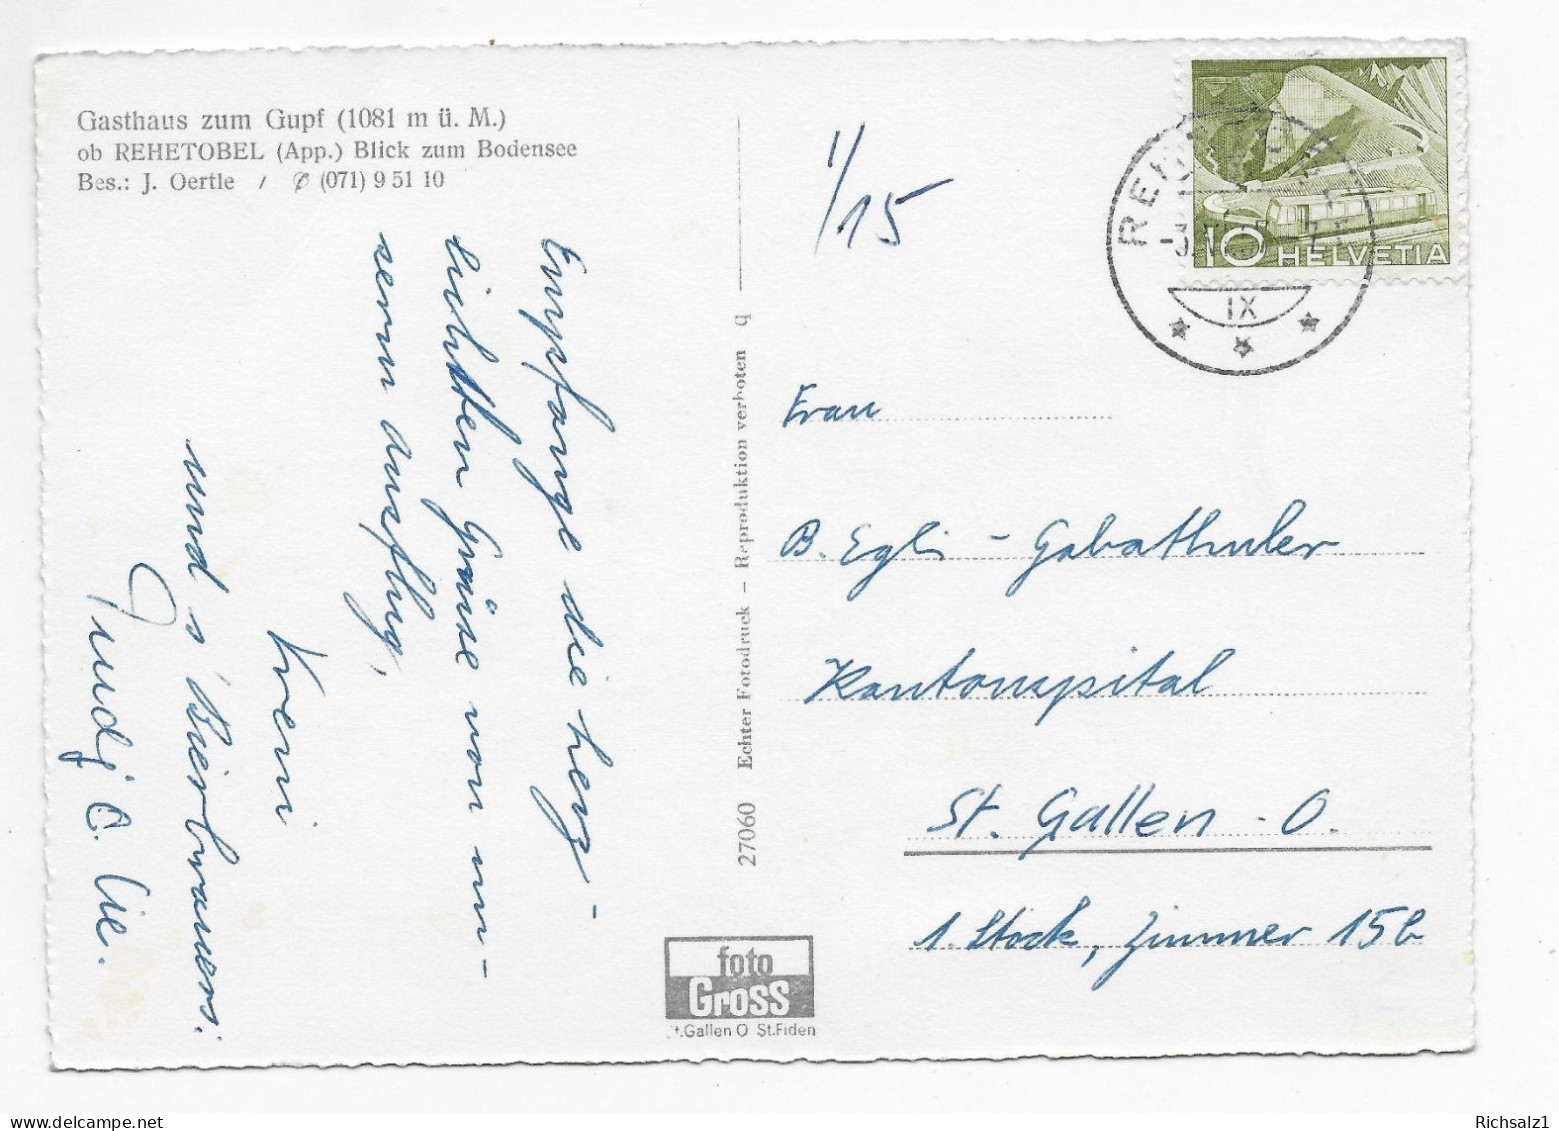 Gasthaus zum Gupf (1081 m ü. M.)
ob REHETOBEL (App.) Blick zum Bodensee
Bes.: J. Oertle / ✆ (071) 9 51 10
Empfange die herz-
lichsten Grüsse von un-
serm Ausflug,
Kreni
und s'Bierbrauers:
Trudj
1/15
HELVETIA
10
IX
Frau
B. Egli - Gabathuler
Kantonspital
St. Gallen - O.
1. Stock, Zimmer 15b
27060 Echter Fotodruck – Reproduktion verboten q
foto
Gross
St.Gallen O St.Fiden
Richsalz1